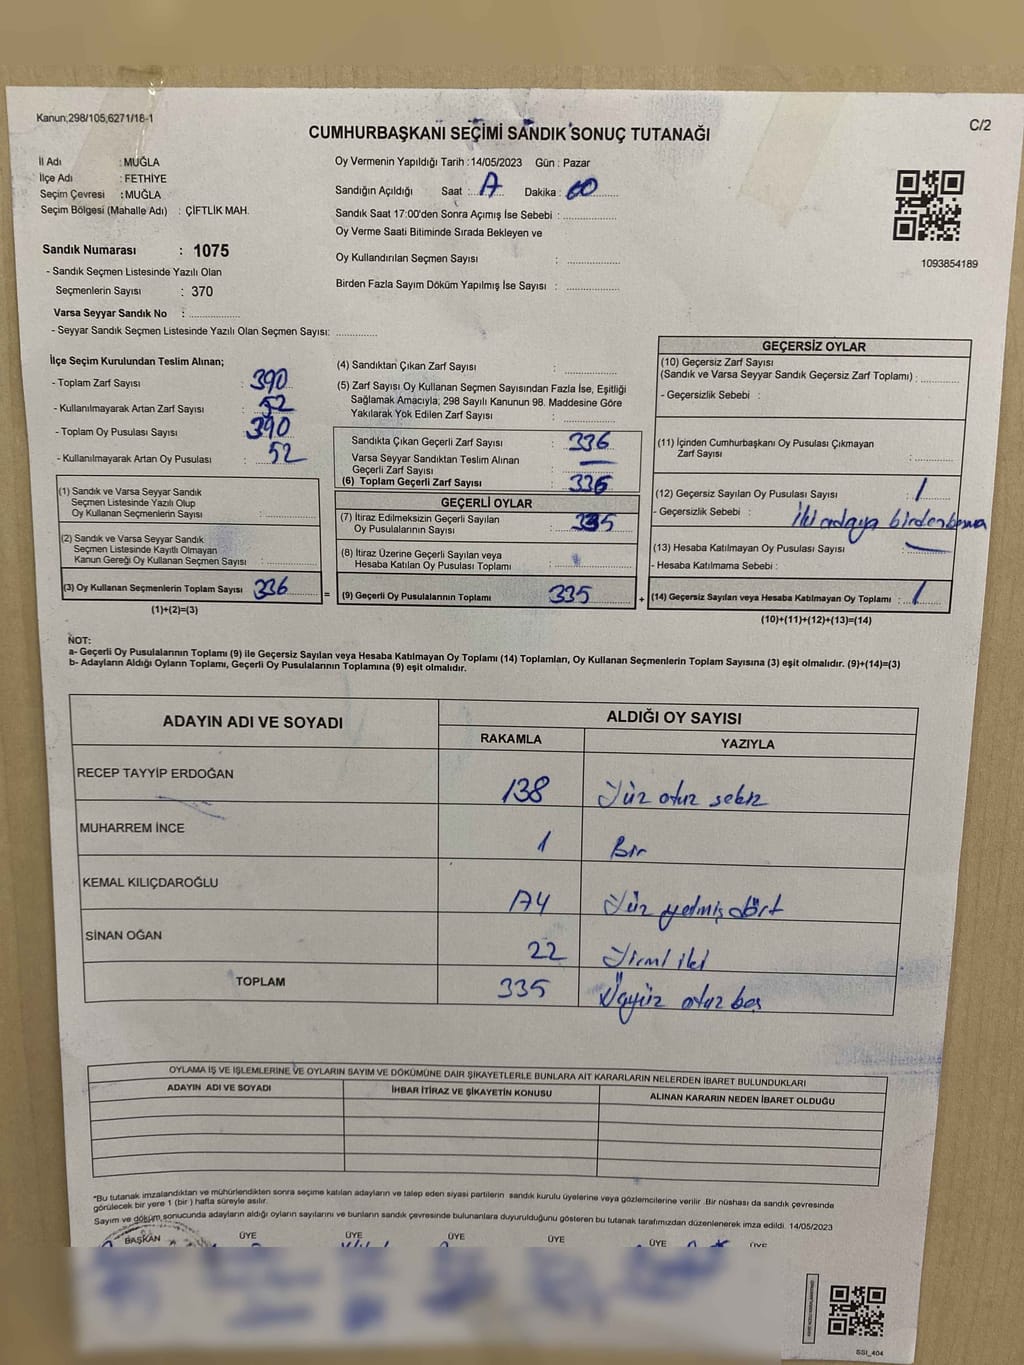 Kanun;298/105,6271/18-1
C/2
CUMHURBAŞKANI SEÇİMİ SANDIK SONUÇ TUTANAĞI
İl Adı : MUĞLA
İlçe Adı : FETHİYE
Seçim Çevresi : MUĞLA
Seçim Bölgesi (Mahalle Adı) : ÇİFTLİK MAH.
Oy Vermenin Yapıldığı Tarih :14/05/2023 Gün : Pazar
Sandığın Açıldığı Saat :.......... Dakika : 00
Sandık Saat 17:00'den Sonra Açımış İse Sebebi : ................
Oy Verme Saati Bitiminde Sırada Bekleyen ve
Oy Kullandırılan Seçmen Sayısı : ................
Birden Fazla Sayım Döküm Yapılmış İse Sayısı : ................
1093854189
Sandık Numarası : 1075
- Sandık Seçmen Listesinde Yazılı Olan
Seçmenlerin Sayısı : 370
Varsa Seyyar Sandık No : ................
- Seyyar Sandık Seçmen Listesinde Yazılı Olan Seçmen Sayısı: ............
İlçe Seçim Kurulundan Teslim Alınan;
- Toplam Zarf Sayısı : 390
- Kullanılmayarak Artan Zarf Sayısı : 52
- Toplam Oy Pusulası Sayısı : 390
- Kullanılmayarak Artan Oy Pusulası : 52
(1) Sandık ve Varsa Seyyar Sandık
Seçmen Listesinde Yazılı Olup
Oy Kullanan Seçmenlerin Sayısı : ................
(2) Sandık ve Varsa Seyyar Sandık
Seçmen Listesinde Kayıtlı Olmayan
Kanun Gereği Oy Kullanan Seçmen Sayısı : ............
(3) Oy Kullanan Seçmenlerin Toplam Sayısı : 336 =
(1)+(2)=(3)
(4) Sandıktan Çıkan Zarf Sayısı : ............
(5) Zarf Sayısı Oy Kullanan Seçmen Sayısından Fazla İse, Eşitliği
Sağlamak Amacıyla; 298 Sayılı Kanunun 98. Maddesine Göre
Yakılarak Yok Edilen Zarf Sayısı : ............
Sandıkta Çıkan Geçerli Zarf Sayısı : 336
Varsa Seyyar Sandıktan Teslim Alınan
Geçerli Zarf Sayısı : —
(6) Toplam Geçerli Zarf Sayısı : 336
GEÇERLİ OYLAR
(7) İtiraz Edilmeksizin Geçerli Sayılan
Oy Pusulalarının Sayısı : 335
(8) İtiraz Üzerine Geçerli Sayılan veya
Hesaba Katılan Oy Pusulası Toplamı :
(9) Geçerli Oy Pusulalarının Toplamı : 335 +
GEÇERSİZ OYLAR
(10) Geçersiz Zarf Sayısı
(Sandık ve Varsa Seyyar Sandık Geçersiz Zarf Toplamı) : ............
- Geçersizlik Sebebi :
(11) İçinden Cumhurbaşkanı Oy Pusulası Çıkmayan
Zarf Sayısı : ............
(12) Geçersiz Sayılan Oy Pusulası Sayısı : 1
- Geçersizlik Sebebi : İki adaya birden
(13) Hesaba Katılmayan Oy Pusulası Sayısı : —
- Hesaba Katılmama Sebebi :
(14) Geçersiz Sayılan veya Hesaba Katılmayan Oy Toplamı : 1
(10)+(11)+(12)+(13)=(14)
NOT:
a- Geçerli Oy Pusulalarının Toplamı (9) ile Geçersiz Sayılan veya Hesaba Katılmayan Oy Toplamı (14) Toplamları, Oy Kullanan Seçmenlerin Toplam Sayısına (3) eşit olmalıdır. (9)+(14)=(3)
b- Adayların Aldığı Oyların Toplamı, Geçerli Oy Pusulalarının Toplamına (9) eşit olmalıdır.
ADAYIN ADI VE SOYADI
ALDIĞI OY SAYISI
RAKAMLA YAZIYLA
RECEP TAYYİP ERDOĞAN 138 Yüz otuz sekiz
MUHARREM İNCE 1 Bir
KEMAL KILIÇDAROĞLU 174 Yüz yetmiş dört
SİNAN OĞAN 22 Yirmi iki
TOPLAM 335 Üçyüz otuz beş
OYLAMA İŞ VE İŞLEMLERİNE VE OYLARIN SAYIM VE DÖKÜMÜNE DAİR ŞİKAYETLERLE BUNLARA AİT KARARLARIN NELERDEN İBARET BULUNDUKLARI
ADAYIN ADI VE SOYADI İHBAR İTİRAZ VE ŞİKAYETİN KONUSU ALINAN KARARIN NEDEN İBARET OLDUĞU
*Bu tutanak imzalandıktan ve mühürlendikten sonra seçime katılan adayların ve talep eden siyasi partilerin sandık kurulu üyelerine veya gözlemcilerine verilir .Bir nüshası da sandık çevresinde
görülecek bir yere 1 (bir ) hafta süreyle asılır.
Sayım ve döküm sonucunda adayların aldığı oyların sayılarını ve bunların sandık çevresinde bulunanlara duyurulduğunu gösteren bu tutanak tarafımızdan düzenlenerek imza edildi. 14/05/2023
BAŞKAN ÜYE ÜYE ÜYE ÜYE ÜYE ÜYE
SSI_404